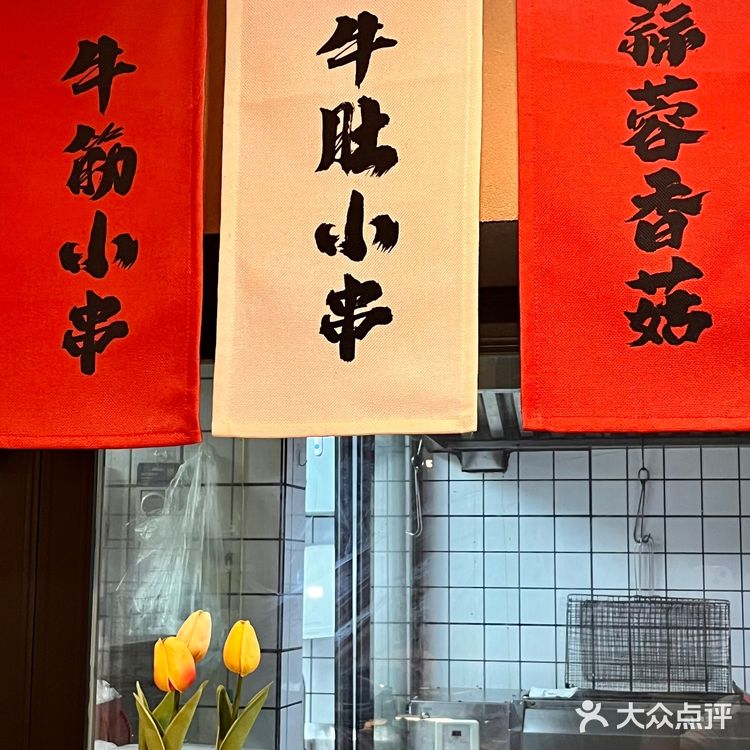 牛筋小串
牛肚小串
蒜蓉香菇
大众点评